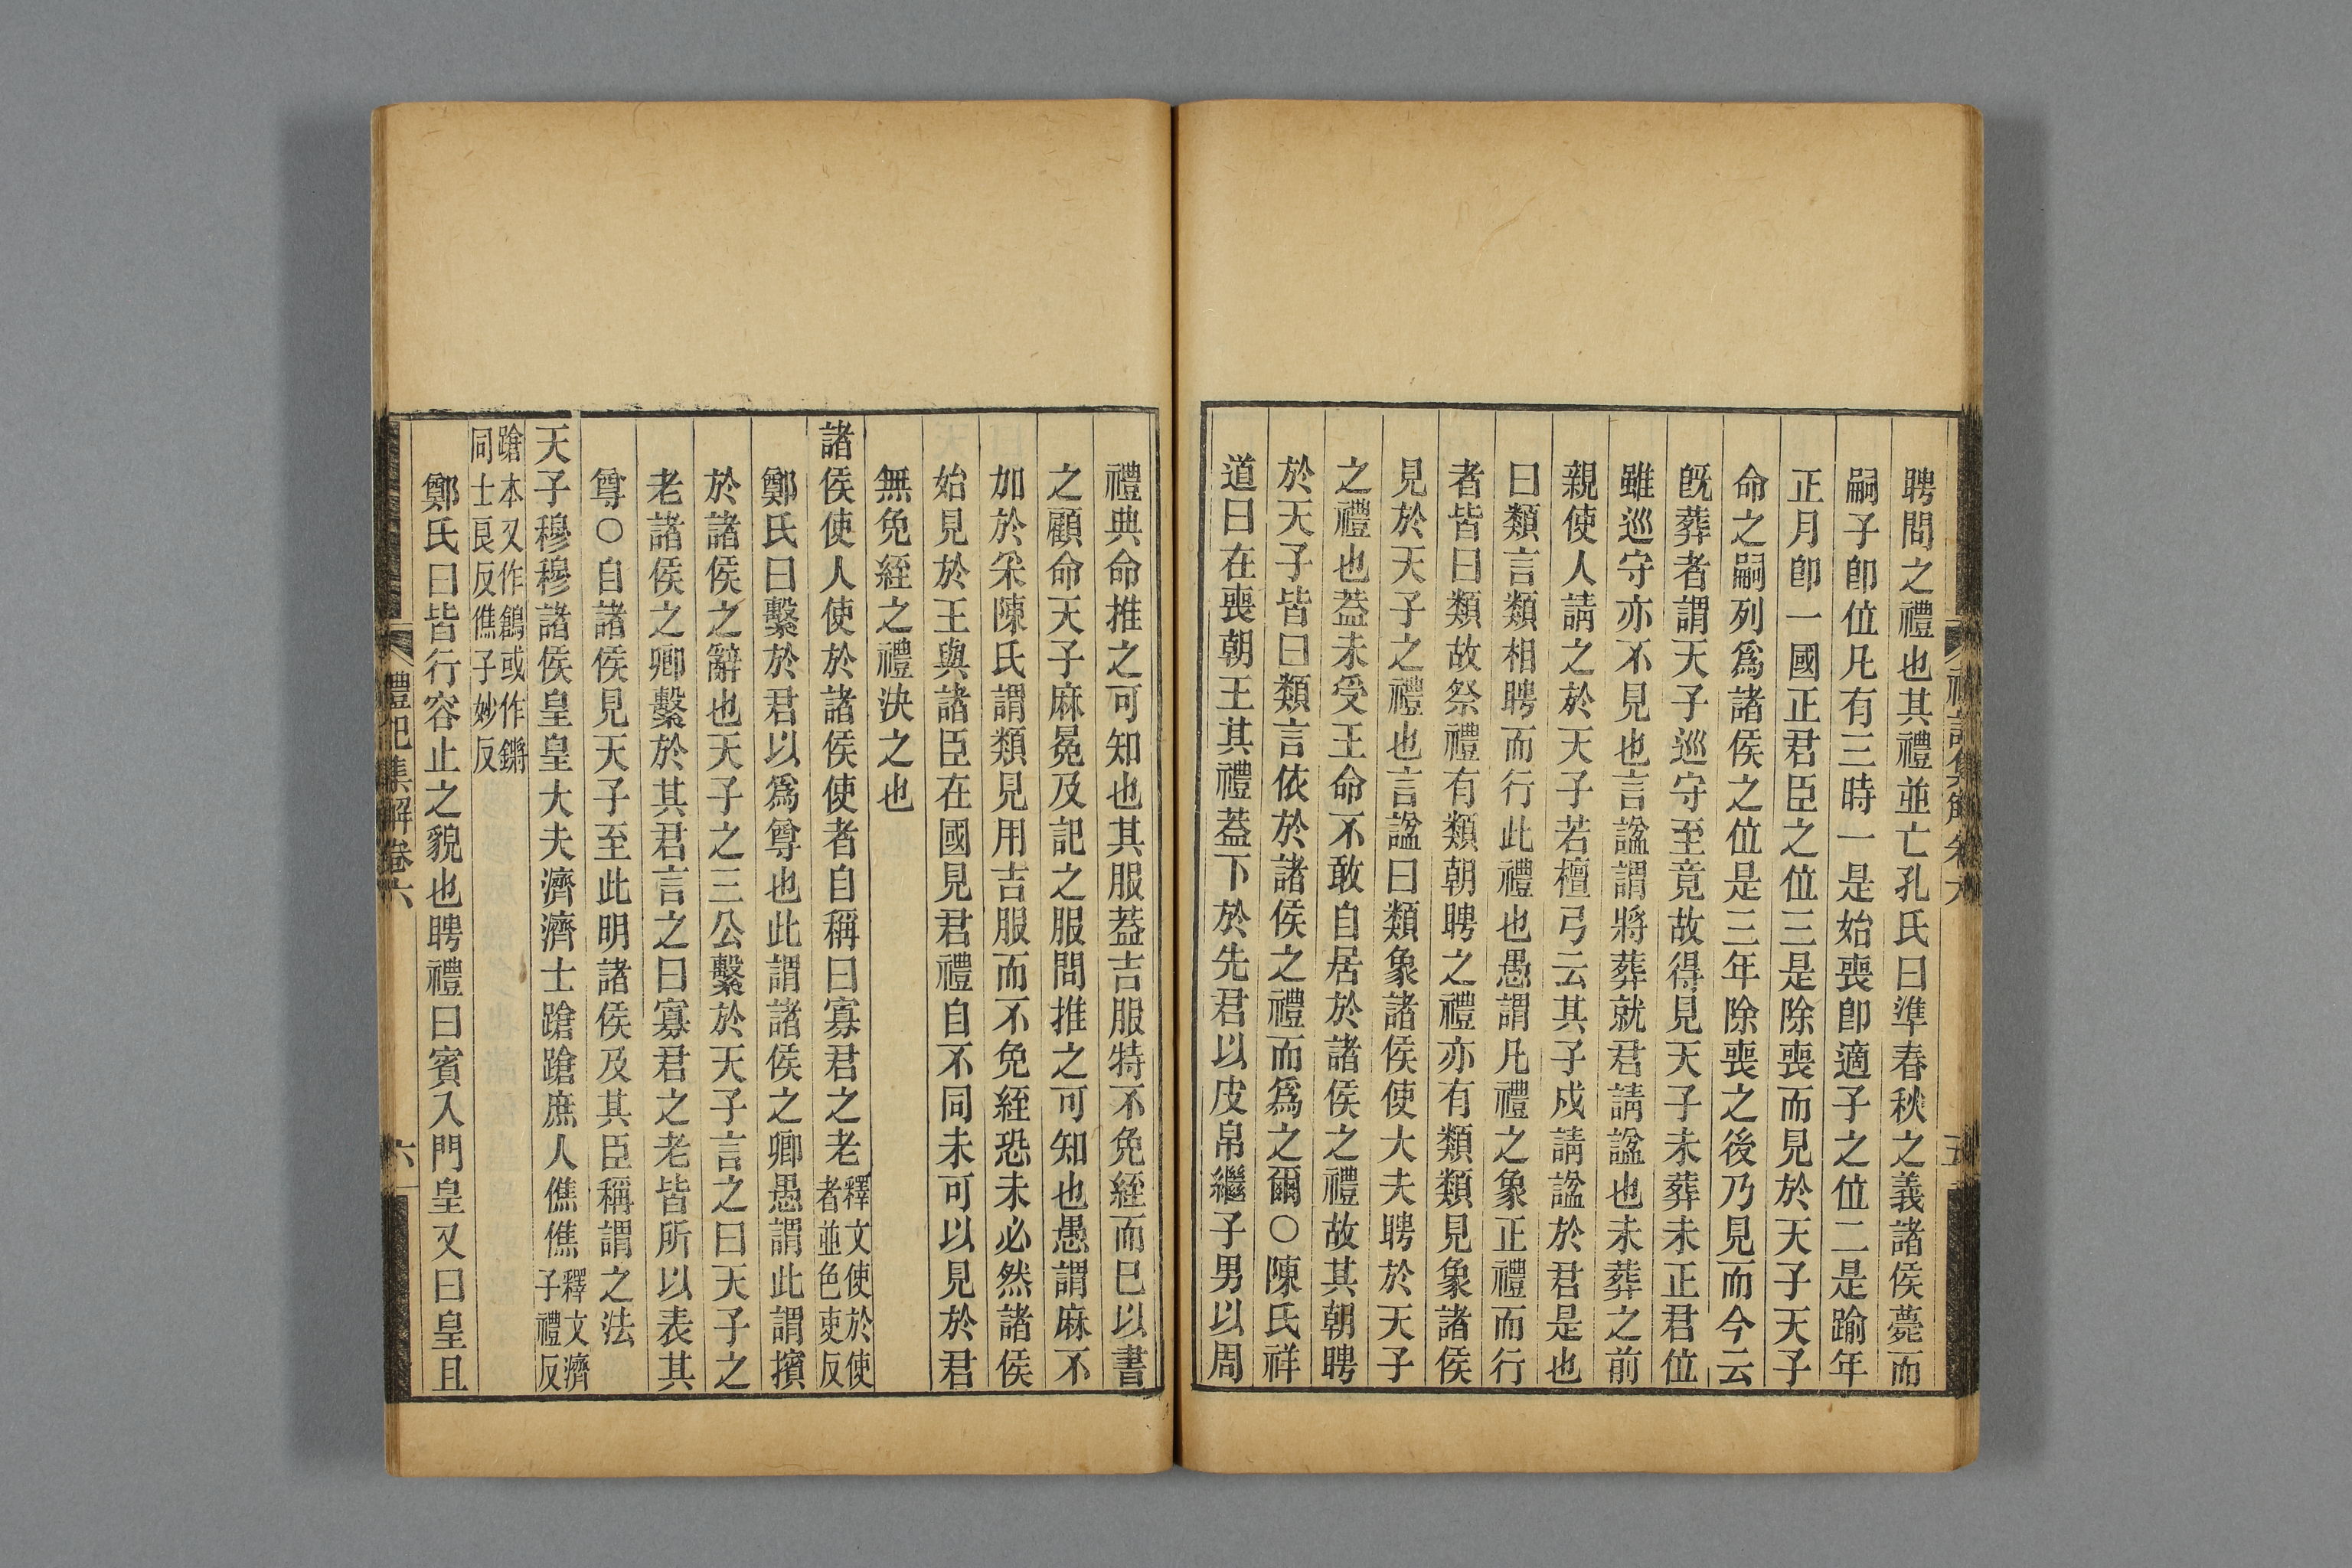 聘問之禮也其禮並亡孔氏曰準春秋之義諸侯薨而
嗣子卽位凡有三時一是始喪卽適子之位二是踰年
正月卽一國正君臣之位三是除喪而見於天子天子
命之嗣列爲諸侯之位是三年除喪之後乃見而今云
旣葬者謂天子巡守至竟故得見天子未葬未正君位
雖巡守亦不見也言諡謂將葬就君請諡也未葬之前
親使人請之於天子若檀弓云其子戍請諡於君是也
曰類言類相聘而行此禮也愚謂凡禮之象正禮而行
者皆曰類故祭禮有類朝聘之禮亦有類類見象諸侯
見於天子之禮也言諡曰類象諸侯使大夫聘於天子
之禮也葢未受王命不敢自居於諸侯之禮故其朝聘
於天子皆曰類言依於諸侯之禮而爲之爾○陳氏祥
道曰在喪朝王其禮葢下於先君以皮帛繼子男以周
禮典命推之可知也其服葢吉服特不免絰而已以書
之顧命天子麻冕及記之服問推之可知也愚謂麻不
加於采陳氏謂類見用吉服而不免絰恐未必然諸侯
始見於王與諸臣在國見君禮自不同未可以見於君
無免絰之禮決之也
諸侯使人使於諸侯使者自稱曰寡君之老釋文使於使
者並色吏反
鄭氏曰繫於君以爲尊也此謂諸侯之卿愚謂此謂擯
於諸侯之辭也天子之三公繫於天子言之曰天子之
老諸侯之卿繫於其君言之曰寡君之老皆所以表其
尊○自諸侯見天子至此明諸侯及其臣稱謂之法
天子穆穆諸侯皇皇大夫濟濟士蹌蹌庶人僬僬釋文濟
子禮反
蹌本又作鶬或作鏘
同士良反僬子妙反
鄭氏曰皆行容止之貌也聘禮曰賓入門皇又曰皇且
禮記集解卷六
六